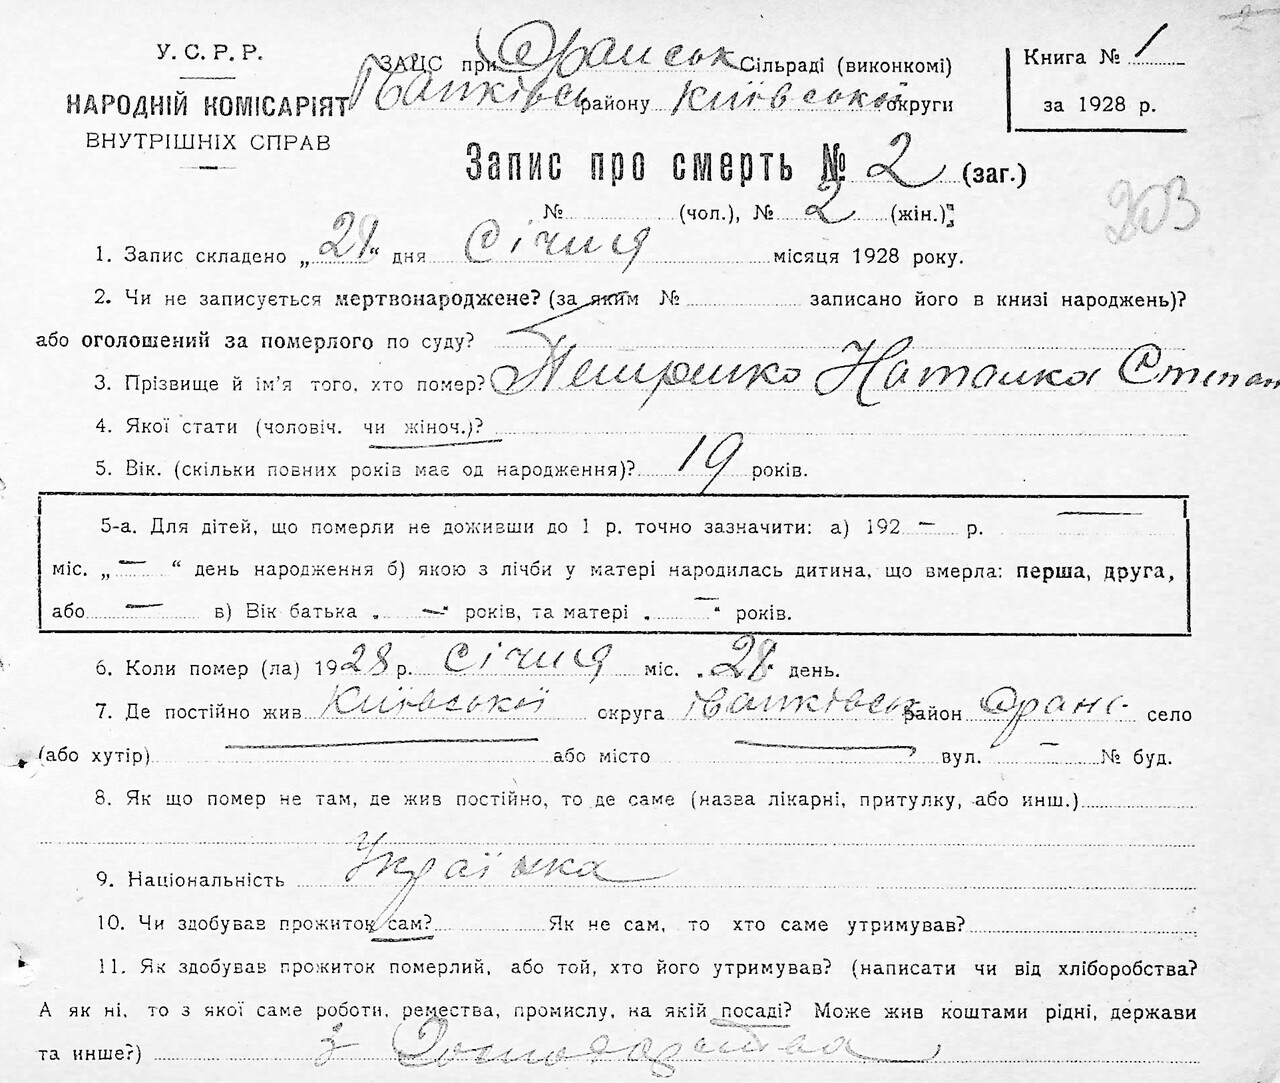 У. С. Р. Р.
НАРОДНІЙ КОМІСАРІЯТ
ВНУТРІШНІХ СПРАВ
ЗАЦС при Оранськ Сільраді (виконкомі)
Іванківськ району Київської округи
Книга № 1
за 1928 р.
Запис про смерть № 2 (заг.)
№ (чол.), № 2 (жін.)
203
1. Запис складено „29“ дня Січня місяця 1928 року.
2. Чи не записується мертвонароджене? (за яким № записано його в книзі народжень)?
або оголошений за померлого по суду?
3. Прізвище й ім'я того, хто помер? Петришко Наталка Степан
4. Якої стати (чоловіч. чи жіноч.)?
5. Вік. (скільки повних років має од народження)? 19 років.
5-а. Для дітей, що померли не доживши до 1 р. точно зазначити: а) 192 — р. —
міс. „ — “ день народження б) якою з лічби у матері народилась дитина, що вмерла: перша, друга,
або — в) Вік батька „ — “ років, та матері „ — “ років.
6. Коли помер (ла) 1928 р. Січня міс. „28“ день.
7. Де постійно жив Київської округа Іванківськ район Оранс село
(або хутір) — або місто — вул. — № буд.
8. Як що помер не там, де жив постійно, то де саме (назва лікарні, притулку, або инш.)
9. Національність Українка
10. Чи здобував прожиток сам? Як не сам, то хто саме утримував?
11. Як здобував прожиток померлий, або той, хто його утримував? (написати чи від хліборобства?
А як ні, то з якої саме роботи, ремества, промислу, на якій посаді? Може жив коштами рідні, держави
та инше?) з Господарства